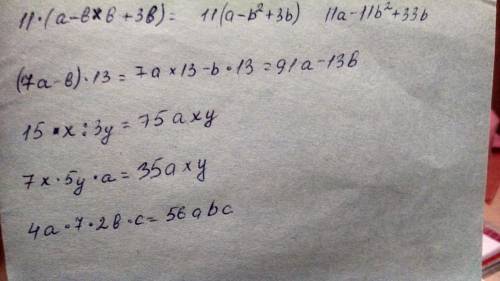 11·(a-в×в+3в)= 11(a-b²+3b) 11a-11b²+33b
(7a-в)·13=7a×13-b·13=91a-13b
15·x:3y=75axy
7x·5y·a=35axy
4a·7·2в·c=56abc